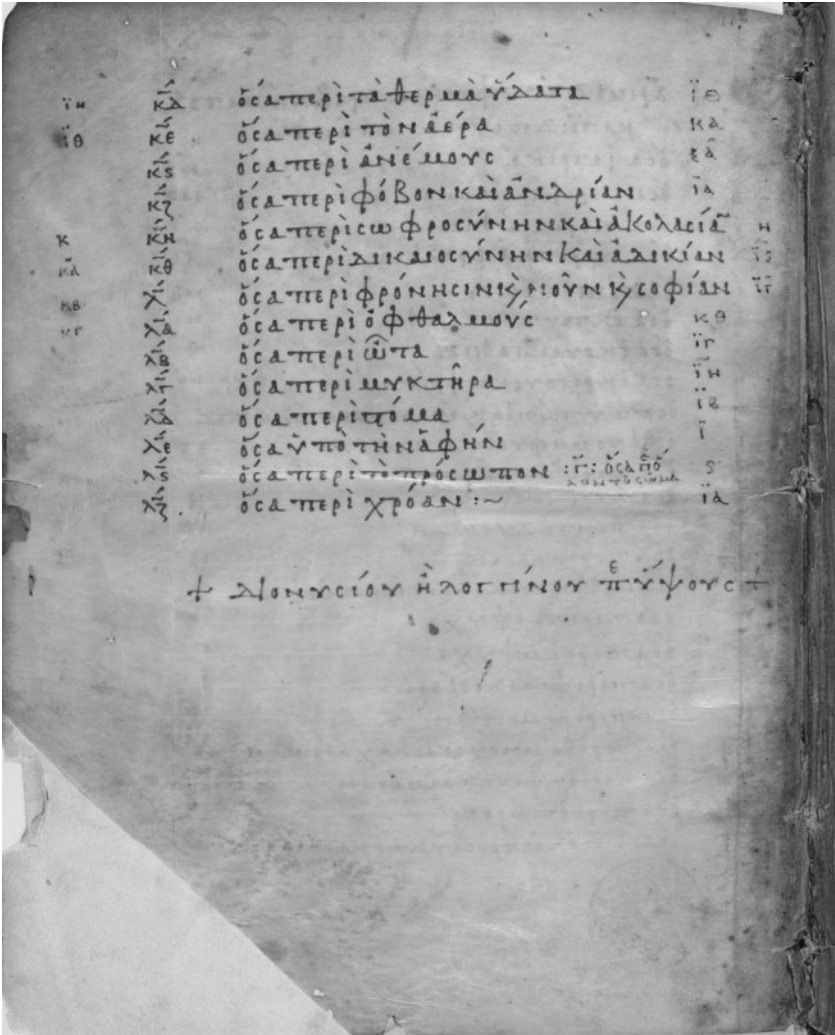 ϊη κδ ὅσα περὶ τὰ θερμὰ ὕδατα ϊθ
ϊθ κε ὅσα περὶ τὸν ἀέρα κα
κς ὅσα περὶ ἀνέμους ξα
κζ ὅσα περὶ φόβον καὶ ἀνδρίαν ϊα
κ κη ὅσα περὶ σωφροσύνην καὶ ἀκολασία̅ η
κα κθ ὅσα περὶ δικαιοσύνην καὶ ἀδικίαν ϊς
κβ λ ὅσα περὶ φρόνησιν κ̀ νοῦν κ̀ σοφίαν
κγ λα ὅσα περὶ ὀφθαλμούς κθ
λβ ὅσα περὶ ὦτα ϊγ
λγ ὅσα περὶ μυκτῆρα ϊη
λδ ὅσα περὶ στόμα ϊβ
λε ὅσα ὑπὸ τὴν ἁφήν ϊ
λς ὅσα περὶ τὸ πρόσωπον ς
λζ ὅσα περὶ χρόαν :~ ϊα
+ Διονυσίου ἢ Λογγίνου πε ὕψους +